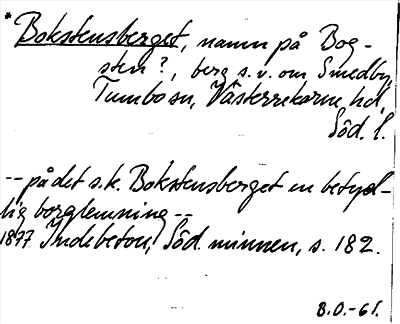 * Bokstensberget, namn på Bog-
sten?, berg s.v. om Smedby,
Tumbo sn, Västerrekarne hd,
Söd. l.
-- på det s.k. Bokstensberget en betyd-
lig borglemning --
1877 Indebetou, Söd. minnen, s. 182.
B.O.-61.